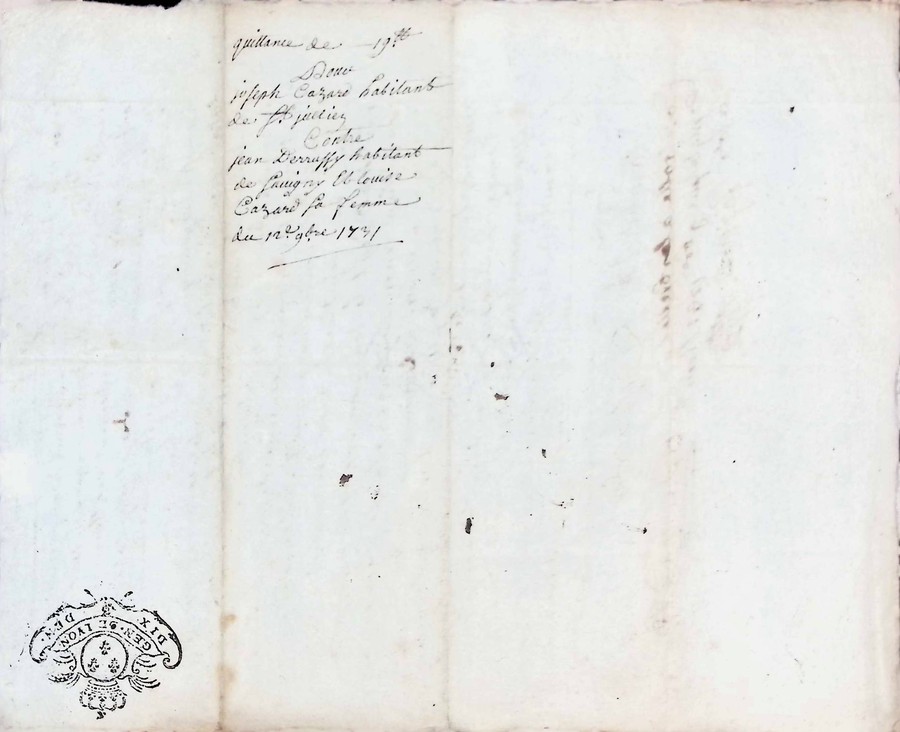 quittance de 19ᵗᵗ
Pour
joseph Cazard habitant
de St jullien
Contre
jean Derussy habitant
de Savigny Et louise
Cazard sa femme
du 12ᵉ 9bre 1731
DIX DEN.
GEN. DE LYON